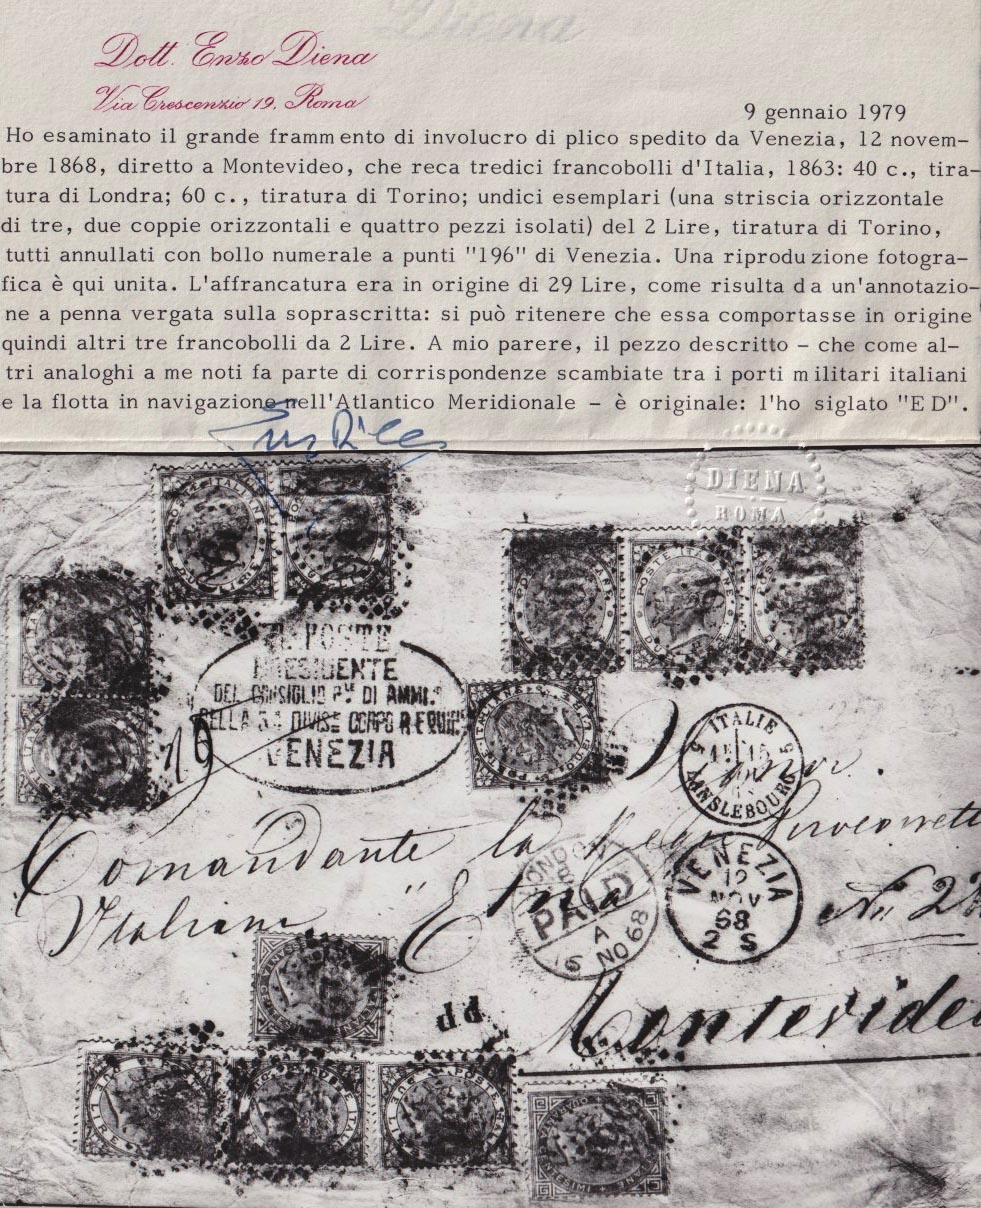 Diena
Dott. Enzo Diena
Via Crescenzio 19, Roma
9 gennaio 1979
Ho esaminato il grande frammento di involucro di plico spedito da Venezia, 12 novem-
bre 1868, diretto a Montevideo, che reca tredici francobolli d'Italia, 1863: 40 c., tira-
tura di Londra; 60 c., tiratura di Torino; undici esemplari (una striscia orizzontale
di tre, due coppie orizzontali e quattro pezzi isolati) del 2 Lire, tiratura di Torino,
tutti annullati con bollo numerale a punti "196" di Venezia. Una riproduzione fotogra-
fica è qui unita. L'affrancatura era in origine di 29 Lire, come risulta da un'annotazio-
ne a penna vergata sulla soprascritta: si può ritenere che essa comportasse in origine
quindi altri tre francobolli da 2 Lire. A mio parere, il pezzo descritto – che come al-
tri analoghi a me noti fa parte di corrispondenze scambiate tra i porti militari italiani
e la flotta in navigazione nell'Atlantico Meridionale – è originale: l'ho siglato "E D".
DIENA
ROMA
POSTE
PRESIDENTE
DEL CONSIGLIO Pº DI AMMI.
DIVISE CORPO R. EQUIP.
VENEZIA
5 ITALIE 5
LANSLEBOURG
Comandante la
Italiana "Etna
LONDON
PAID
A
16 NO 68
VENEZIA
12
NOV
68
2 S
PP
Montevideo